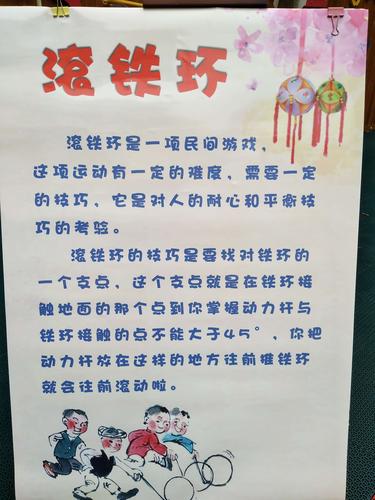 滚铁环
滚铁环是一项民间游戏，
这项运动有一定的难度，需要一定
的技巧，它是对人的耐心和平衡技
巧的考验。
滚铁环的技巧是要找对铁环的
一个支点，这个支点就是在铁环接
触地面的那个点到你掌握动力杆与
铁环接触的点不能大于45°，你把
动力杆放在这样的地方往前推铁环
就会往前滚动啦。